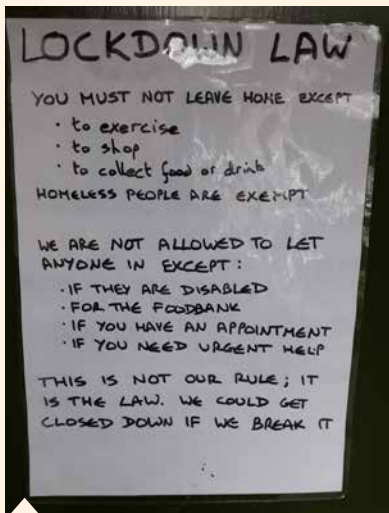 LOCKDOWN LAW
YOU MUST NOT LEAVE HOME EXCEPT
• to exercise
• to shop
• to collect food or drink
HOMELESS PEOPLE ARE EXEMPT
WE ARE NOT ALLOWED TO LET
ANYONE IN EXCEPT:
• IF THEY ARE DISABLED
• FOR THE FOODBANK
• IF YOU HAVE AN APPOINTMENT
• IF YOU NEED URGENT HELP
THIS IS NOT OUR RULE; IT
IS THE LAW. WE COULD GET
CLOSED DOWN IF WE BREAK IT